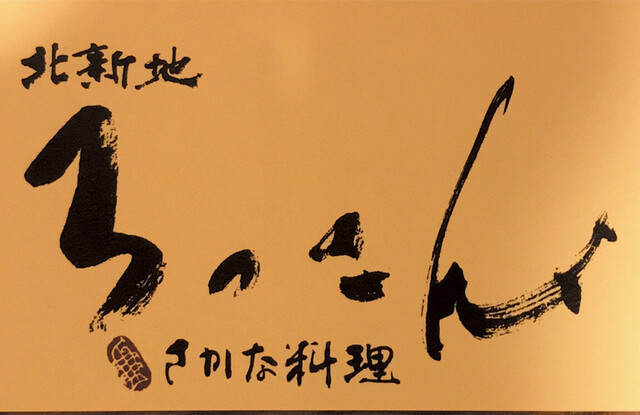 北新地
ろっさん
さかな料理